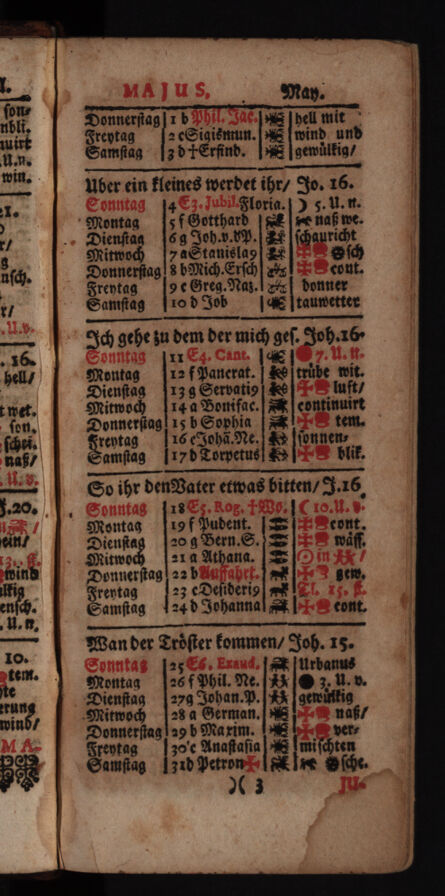 MAJUS. May.
Donnerstag 1 b Phil. Jac. hell mit
Freytag 2 c Sigismun. wind und
Samstag 3 d †Erfind. gewülkig/
Uber ein kleines werdet ihr/ Jo. 16.
Sonntag 4 E3. Jubil. Floria. ☽ 5. U. n.
Montag 5 f Gotthard naß we.
Dienstag 6 g Joh. v. dP. schauricht
Mittwoch 7 a Stanisla9
Donnerstag 8 b Mich. Ersch cont.
Freytag 9 c Greg. Naz. donner
Samstag 10 d Job tauwetter
Ich gehe zu dem der mich ges. Joh. 16.
Sonntag 11 E4. Cant. 7. U. n.
Montag 12 f Pancrat. trübe wit.
Dienstag 13 g Servati9 luft/
Mitwoch 14 a Bonifac. continuirt
Donnerstag 15 b Sophia tem.
Freytag 16 c Johā. Ne. sonnen-
Samstag 17 d Torpetus blik.
So ihr den Vater etwas bitten/ J. 16
Sonntag 18 E5. Rog. †Wo. ☾ 10. U. v.
Montag 19 f Pudent. cont.
Dienstag 20 g Bern. S. wäss.
Mitwoch 21 a Athana. ☉ in ♊ /
Donnerstag 22 b Auffahrt. gew.
Freytag 23 c Desideri9 Cl. 15. k.
Samstag 24 d Johanna cont.
Wan der Tröster kommen/ Joh. 15.
Sonntag 25 E6. Exaud. Urbanus
Montag 26 f Phil. Ne. 3. U. v.
Dienstag 27 g Johan. P. gewülkig
Mitwoch 28 a German. naß/
Donnerstag 29 b Maxim. ver-
Freytag 30 c Anastasia mischten
Samstag 31 d Petron sche.
)( 3 JU-